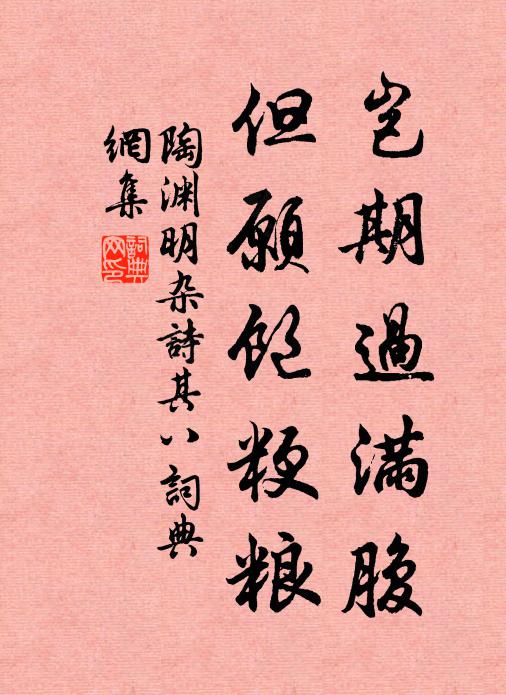 豈期過滿腹
但願飽粳粮
陶渊明杂詩其八詞典
網集
詞典
网印